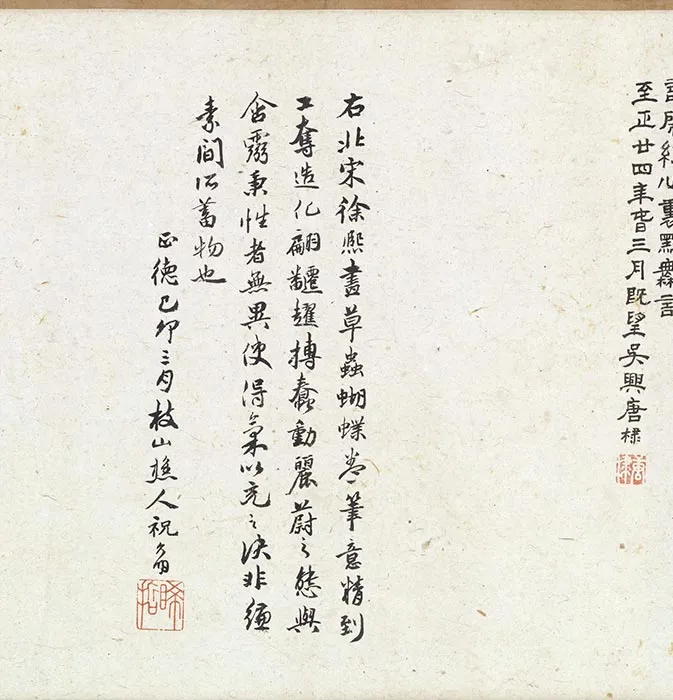 至正廿四年春三月既望吳興唐棣
唐棣
右北宋徐熙畫草蟲蝴蝶卷筆意精到
工奪造化翩趯摶蠢動麗蔚之態與
含靈秉性者無異使得氣以充之決非縑
素間所蓄物也
正德己卯三月枝山樵人祝允明
晞哲